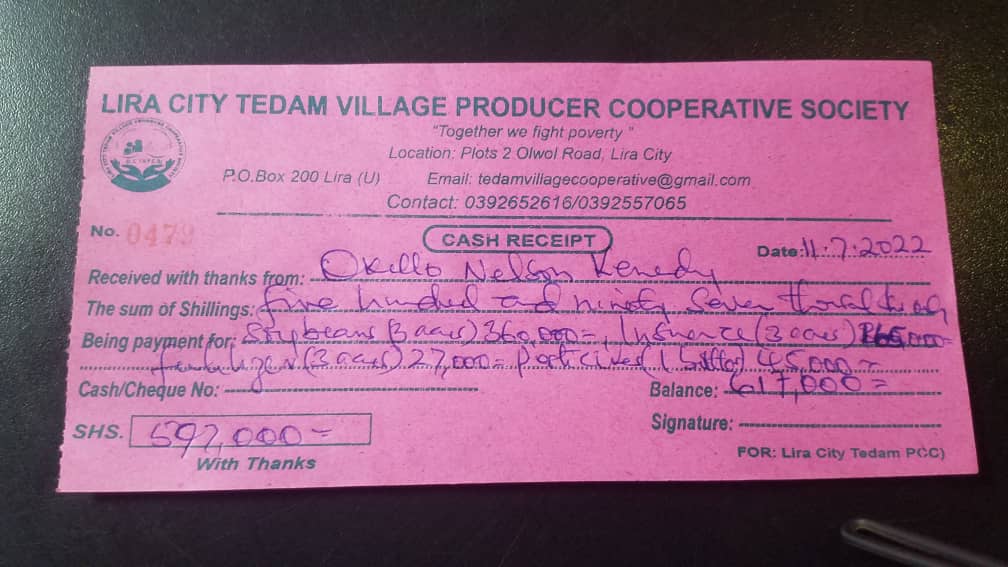 LIRA CITY TEDAM VILLAGE PRODUCER COOPERATIVE SOCIETY
"Together we fight poverty"
Location: Plots 2 Olwol Road, Lira City
P.O.Box 200 Lira (U) Email: tedamvillagecooperative@gmail.com
Contact: 0392652616/0392557065
No. 0479 CASH RECEIPT Date: 11.7.2022
Received with thanks from: Okello Nelson Kenedy
The sum of Shillings: five hundred and ninety seven thousand
Being payment for: Soybeans (3 acres) 360,000= Insurance (3 acres)
(3 acres) 27,000= (1 45,000=
Cash/Cheque No: Balance: 617,000=
SHS. 597,000= Signature:
With Thanks FOR: Lira City Tedam PCC)